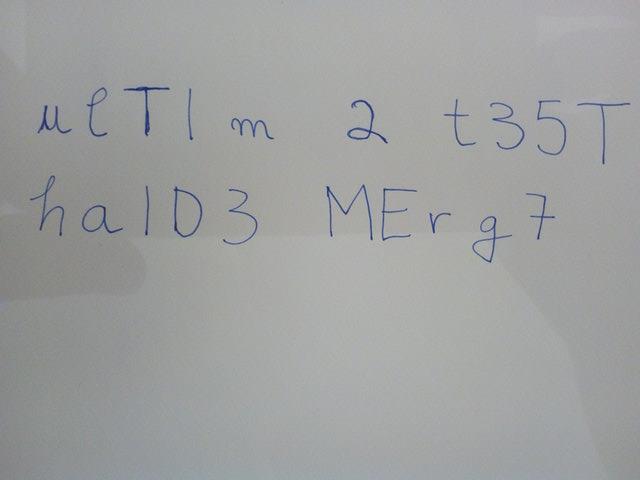 ultIm 2 t35T
halD3 MErg7